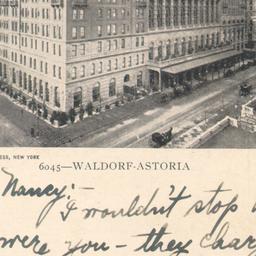 ESS, NEW YORK
6045—WALDORF-ASTORIA
Nancy:
I wouldn't stop
were you - they char